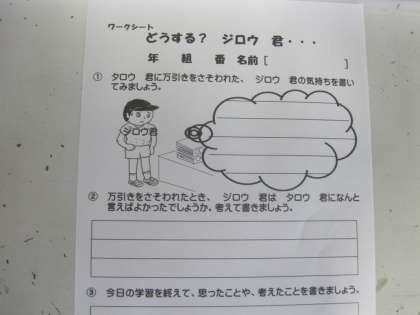 ワークシート
どうする？ ジロウ 君・・・
年 組 番 名前［ ］
① タロウ 君に万引きをさそわれた、 ジロウ 君の気持ちを書い
てみましょう。
ジロウ君
② 万引きをさそわれたとき、 ジロウ 君は タロウ 君になんと
言えばよかったでしょうか。考えて書きましょう。
③ 今日の学習を終えて、思ったことや、考えたことを書きましょう。